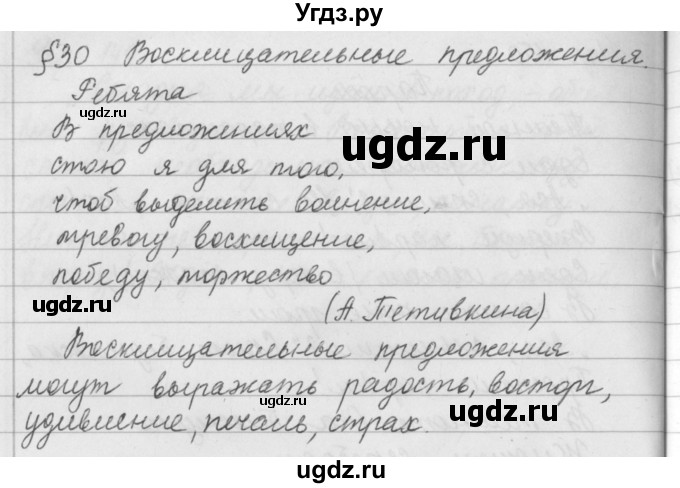 Угдз.ру
§30 Восклицательные предложения.
Ребята
ugdz.ru
В предложениях
стою я для того,
ugdz.ru
чтоб выделить волнение,
тревогу, восхищение,
победу, торжество
ugdz.ru
ugdz.ru
(А. Тетивкина)
Восклицательные предложения
могут выражать радость, восторг,
ugdz.ru
удивление, печаль, страх.
ugdz.ru
ugdz.ru